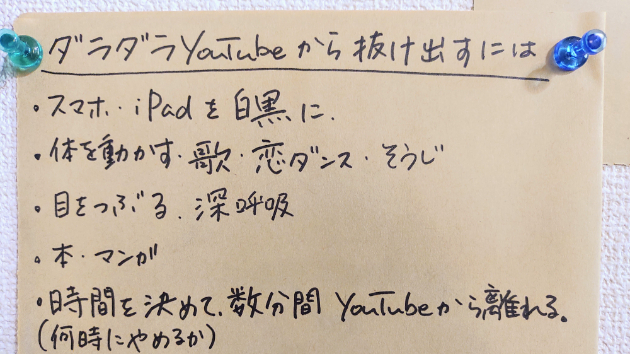 ダラダラYouTubeから抜け出すには
・スマホ・iPadを白黒に.
・体を動かす・歌・恋ダンス・そうじ
・目をつぶる.深呼吸
・本・マンガ
・時間を決めて、数分間YouTubeから離れる。
(何時にやめるか)